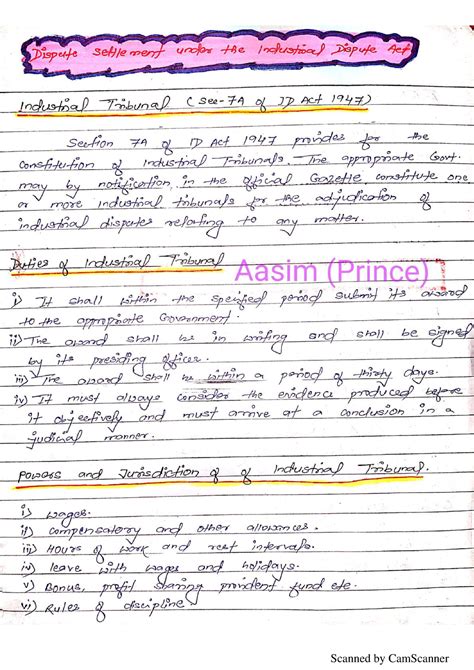 Dispute settlement under the Industrial Dispute Act
Industrial Tribunal (Sec-7A of ID Act 1947)
Section 7A of ID Act 1947 provides for the
constitution of Industrial Tribunals. The appropriate Govt.
may by notification in the official Gazette constitute one
or more industrial tribunals for the adjudication of
industrial disputes relating to any matter.
Duties of Industrial Tribunal
Aasim (Prince)
i) It shall within the specified period submit its award
to the appropriate Government.
ii) The award shall be in writing and shall be signed
by its presiding officer.
iii) The award shall be within a period of thirty days.
iv) It must always consider the evidence produced before
it objectively and must arrive at a conclusion in a
judicial manner.
Powers and Jurisdiction of of Industrial Tribunal.
i) wages.
ii) compensatory and other allowances.
iii) Hours of work and rest intervals.
iv) leave with wages and holidays.
v) Bonus, profit sharing provident fund etc.
vi) Rules of discipline
Scanned by CamScanner